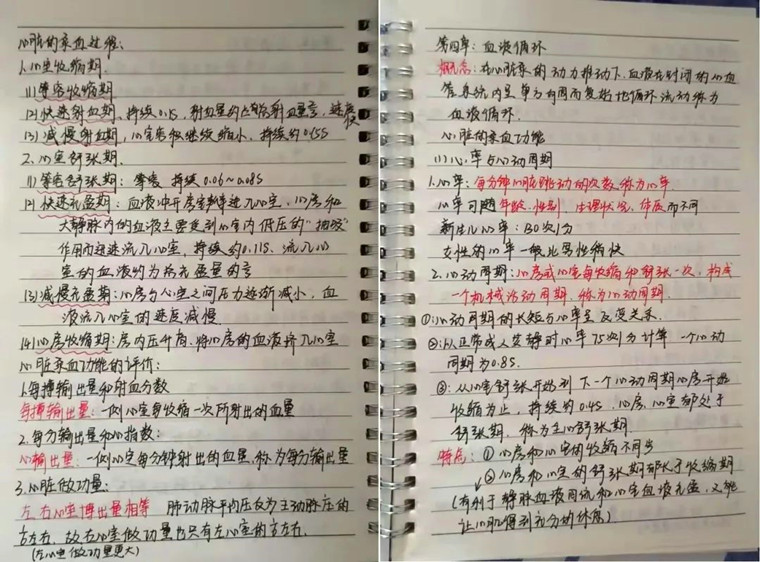 心脏的泵血过程:
1.心室收缩期.
(1)等容收缩期
(2)快速射血期、持续0.1s,射血量约占总射血量
(3)减慢射血期,心室容积继续缩小、持续约0.15s
2.心室舒张期.
(1)等容舒张期: 持续0.06~0.08s
(2)快速充盈期:血液冲开房室瓣进入心室,心房和
大静脉内的血液主要受到心室内低压的“抽吸”
作用而迅速流入心室,持续约0.11s、流入心
室的血液约为总充盈量的
(3)减慢充盈期:心房与心室之间压力逐渐减小,血
液流入心室的速度减慢
(4)心房收缩期:房内压升高,将心房的血液挤入心室
心脏泵血功能的评价:
1.每搏输出量和射血分数
每搏输出量:一侧心室每收缩一次所射出的血量
2.每分输出量和心指数:
心输出量:一侧心室每分钟射出的血量,称为每分输出量
3.心脏做功量:
左右心室搏出量相等 肺动脉平均压仅为主动脉压的
右,故右心室做功量也只有左心室的 右.
(左心室做功量更大)
第四章:血液循环
概念:在心脏泵的动力推动下,血液在封闭的心血
管系统内呈单方向周而复始地循环流动称为
血液循环.
心脏的泵血功能
(1)心率与心动周期
1.心率:每分钟心脏跳动的次数称为心率.
心率可随年龄、性别、生理状况、体质而不同
新生儿心率:130次/分
女性的心率一般比男性稍快
2.心动周期:心房或心室每收缩和舒张一次,构成
一个机械活动周期,称为心动周期.
①:心动周期的长短与心率呈反变关系.
②:以正常成人安静时心率75次/分计算 一个心动
周期为0.8s.
③:从心室舒张开始到下一个心动周期心房开始
收缩为止,持续约0.4s、心房、心室都处于
舒张期,称为全心舒张期
特点:①心房和心室的收缩不同步
②心房和心室的舒张期都长于收缩期
(有利于静脉血液回流和心室血液充盈,又能
让心肌得到充分的休息)